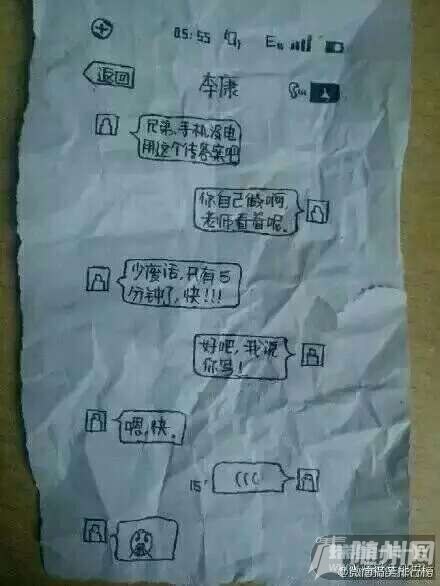 05:55 E
返回
李康
兄弟,手机没电
用这个传答案吧
你自己做啊,
老师看着呢.
少废话,只有5
分钟了,快!!!
好吧,我说
你写!
嗯,快.
15" (((
随州网
@微博搞笑排行榜